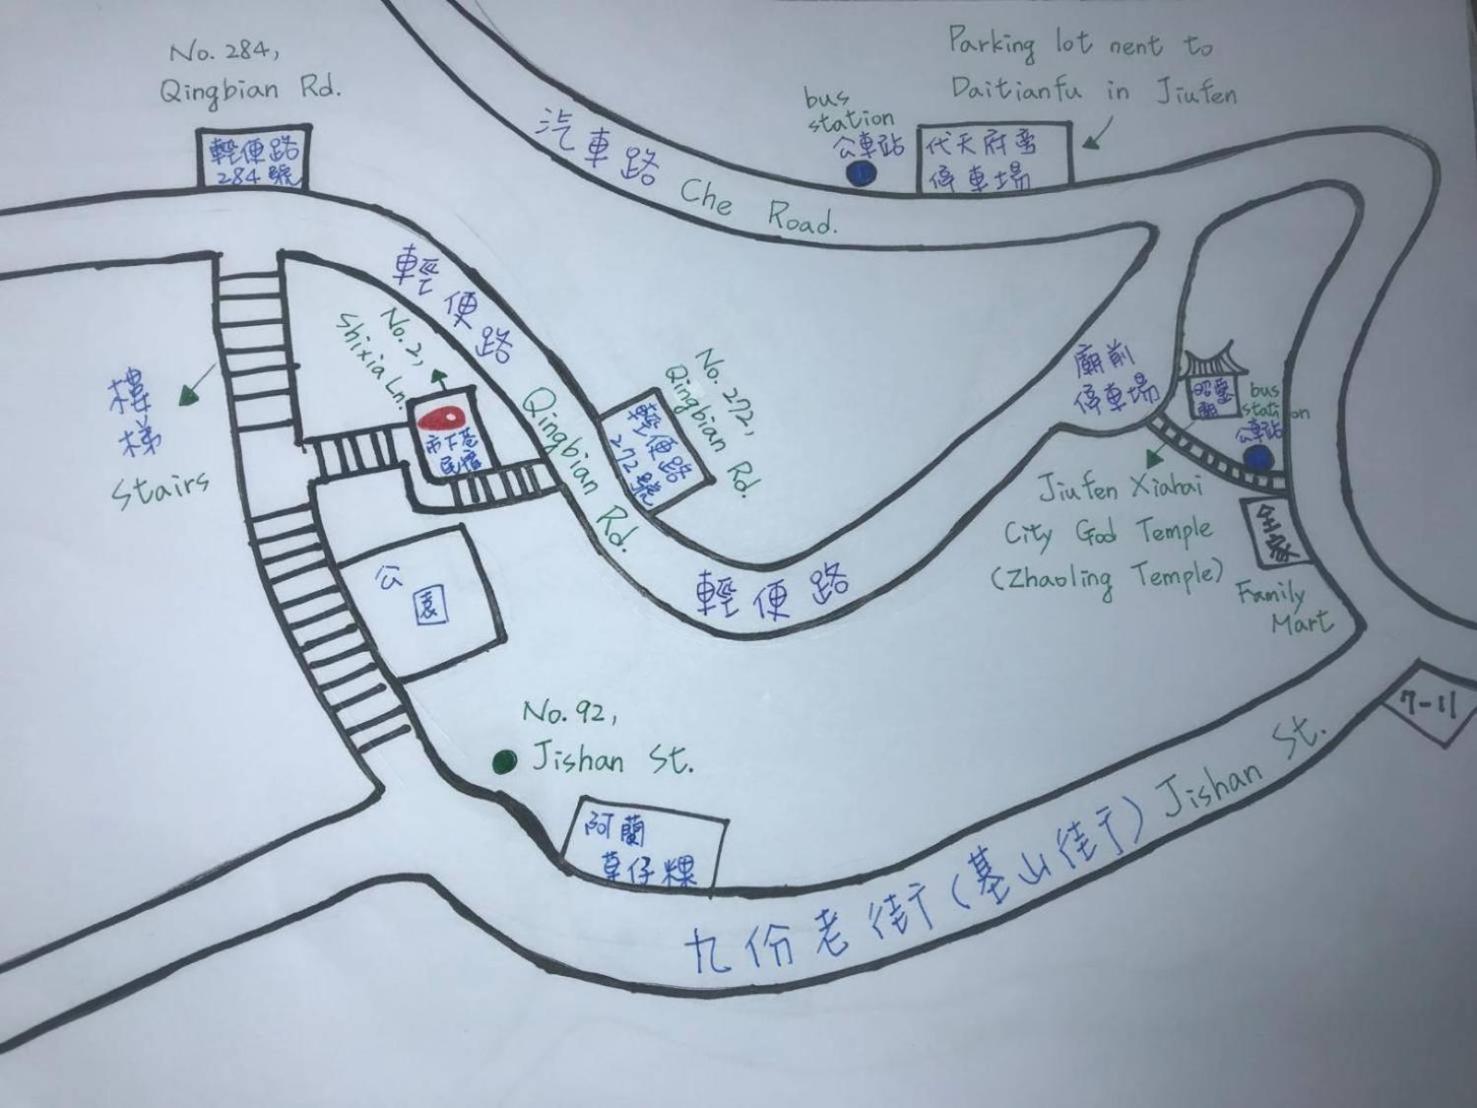 No. 284,
Qingbian Rd.
輕便路
284號
Parking lot nent to
Daitianfu in Jiufen
bus
station
公車站
代天府旁
停車場
汽車路 Che Road.
輕便路
No. 2,
Shixia Ln.
市下巷
民宿
Qingbian Rd.
No. 272,
Qingbian Rd.
輕便路
272號
廟前
停車場
昭靈
廟
bus
station
公車站
樓梯
Stairs
Jiufen Xiahai
City God Temple
(Zhaoling Temple)
全家
Family
Mart
輕便路
公園
7-11
No. 92,
Jishan St.
阿蘭
草仔粿
九份老街(基山街) Jishan St.